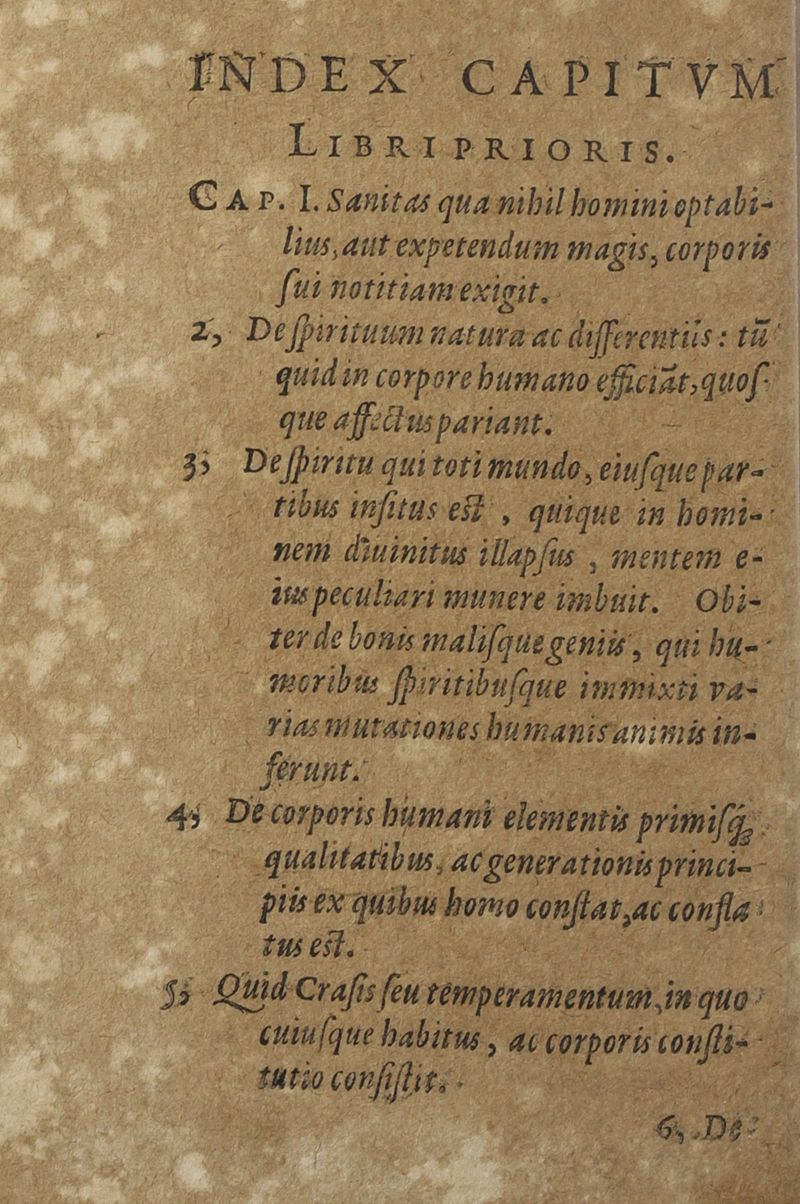 INDEX CAPITVM
LIBRI PRIORIS.
CAP. I. Sanitas qua nihil homini optabi-
lius, aut expetendum magis, corporis
ſui notitiam exigit.
2, De ſpirituum natura ac differentiis: tū
quid in corpore humano efficiāt, quoſ-
que affectus pariant.
3, De ſpiritu qui toti mundo, eiuſque par-
tibus inſitus est, quique in homi-
nem diuinitus illapſus, mentem e-
ius peculiari munere imbuit. Obi-
ter de bonis maliſque geniis, qui hu-
moribus ſpiritibuſque immixti va-
rias mutationes humanis animis in-
ferunt.
4, De corporis humani elementis primiſq́;
qualitatibus, ac generationis princi-
piis ex quibus homo conſtat, ac confla
tus est.
5, Quid Craſis ſeu temperamentum, in quo
cuiuſque habitus, ac corporis conſti-
tutio conſiſtit.
6, De